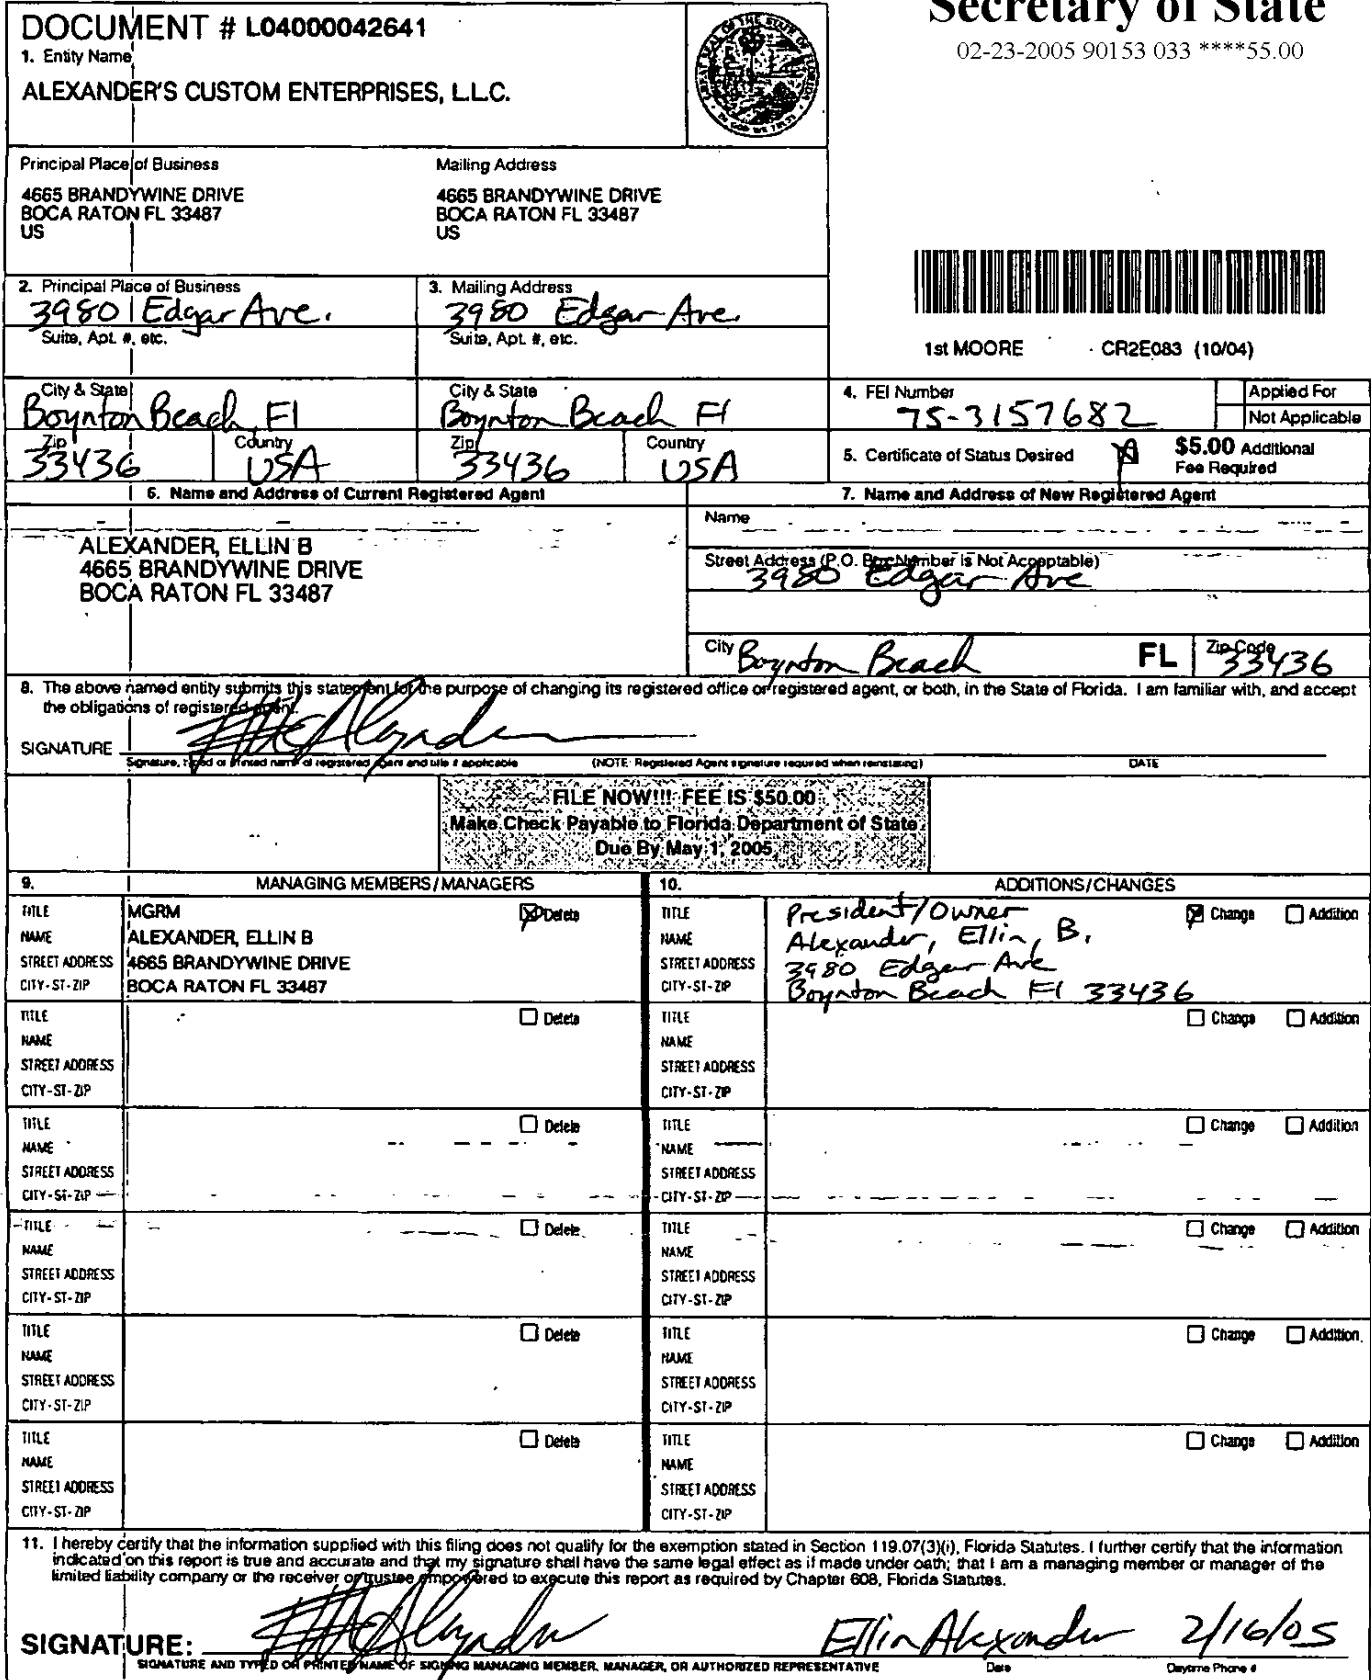 Secretary of State
02-23-2005 90153 033 ****55.00
DOCUMENT # L04000042641
1. Entity Name
ALEXANDER'S CUSTOM ENTERPRISES, L.L.C.
Principal Place of Business
Mailing Address
4665 BRANDYWINE DRIVE
BOCA RATON FL 33487
US
4665 BRANDYWINE DRIVE
BOCA RATON FL 33487
US
1st MOORE CR2E083 (10/04)
2. Principal Place of Business
3980 Edgar Ave.
Suite, Apt. #, etc.
3. Mailing Address
3980 Edgar Ave.
Suite, Apt. #, etc.
City & State
Boynton Beach, Fl
City & State
Boynton Beach Fl
4. FEI Number
75-3157682
Applied For
Not Applicable
Zip
33436
Country
USA
Zip
33436
Country
USA
5. Certificate of Status Desired
$5.00 Additional
Fee Required
6. Name and Address of Current Registered Agent
7. Name and Address of New Registered Agent
ALEXANDER, ELLIN B
4665 BRANDYWINE DRIVE
BOCA RATON FL 33487
Name
Street Address (P.O. Box Number is Not Acceptable)
3980 Edgar Ave
City Boynton Beach FL Zip Code 33436
8. The above named entity submits this statement for the purpose of changing its registered office or registered agent, or both, in the State of Florida. I am familiar with, and accept
the obligations of registered agent.
SIGNATURE
Signature, typed or printed name of registered agent and title if applicable (NOTE: Registered Agent signature required when reinstating) DATE
FILE NOW!!! FEE IS $50.00
Make Check Payable to Florida Department of State
Due By May 1, 2005
9. MANAGING MEMBERS/MANAGERS
10. ADDITIONS/CHANGES
TITLE MGRM Delete
NAME ALEXANDER, ELLIN B
STREET ADDRESS 4665 BRANDYWINE DRIVE
CITY-ST-ZIP BOCA RATON FL 33487
TITLE President/Owner Change Addition
NAME Alexander, Ellin, B.
STREET ADDRESS 3980 Edgar Ave
CITY-ST-ZIP Boynton Beach Fl 33436
TITLE Delete
NAME
STREET ADDRESS
CITY-ST-ZIP
TITLE Change Addition
NAME
STREET ADDRESS
CITY-ST-ZIP
TITLE Delete
NAME
STREET ADDRESS
CITY-ST-ZIP
TITLE Change Addition
NAME
STREET ADDRESS
CITY-ST-ZIP
TITLE Delete
NAME
STREET ADDRESS
CITY-ST-ZIP
TITLE Change Addition
NAME
STREET ADDRESS
CITY-ST-ZIP
TITLE Delete
NAME
STREET ADDRESS
CITY-ST-ZIP
TITLE Change Addition
NAME
STREET ADDRESS
CITY-ST-ZIP
TITLE Delete
NAME
STREET ADDRESS
CITY-ST-ZIP
TITLE Change Addition
NAME
STREET ADDRESS
CITY-ST-ZIP
11. I hereby certify that the information supplied with this filing does not qualify for the exemption stated in Section 119.07(3)(i), Florida Statutes. I further certify that the information
indicated on this report is true and accurate and that my signature shall have the same legal effect as if made under oath; that I am a managing member or manager of the
limited liability company or the receiver or trustee empowered to execute this report as required by Chapter 608, Florida Statutes.
SIGNATURE: Ellin Alexander 2/16/05
SIGNATURE AND TYPED OR PRINTED NAME OF SIGNING MANAGING MEMBER, MANAGER, OR AUTHORIZED REPRESENTATIVE Date Daytime Phone #